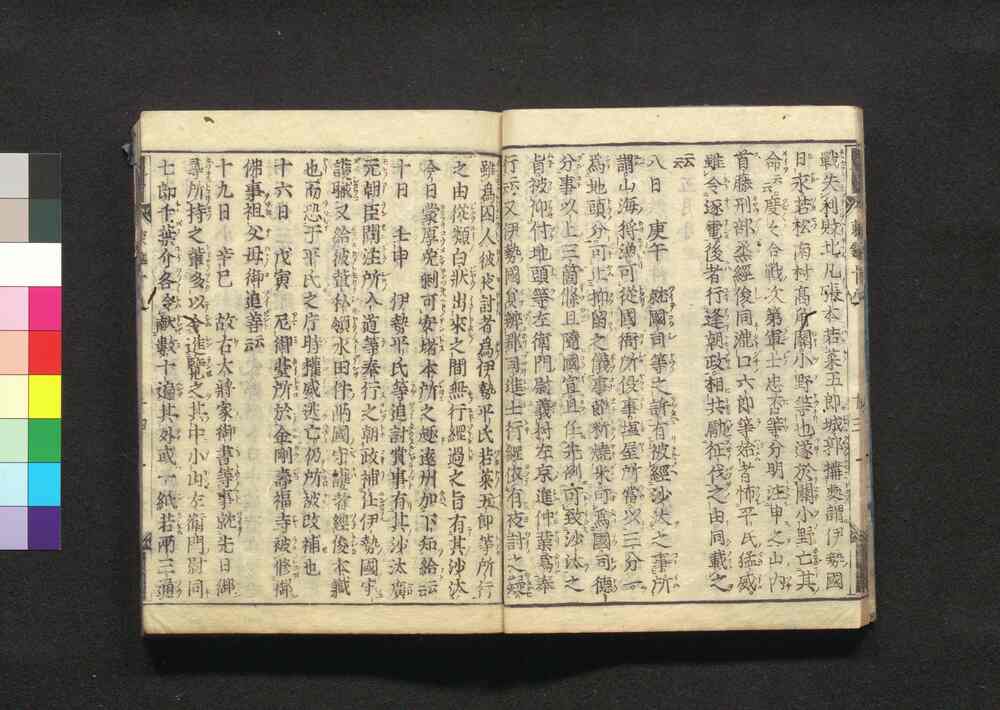 戰失利財北凡張本若菜五郎城郭構奧謂伊勢國
日永若松南村高角關小野等也遂於關小野亡其
命云々度々合戰次第軍士忠否等分明注申之山內
首藤刑部丞經俊同瀧口六郎等始者怖平氏猛威
雖令逐電後者行逢朝政相共勵征伐之由同載之
云云
八日　庚午　就國司等之訴有被經沙汰之事所
謂山海狩漁可從國衙所役事塩屋所當以三分一
為地頭分可止抑留之儀事節料燒米可為國司德
分事以上三箇條且隨國宣且任先例可致沙汰之
旨被仰付地頭等左衛門尉義村左京進仲業為奉
行云云又伊勢國員辨郡司進士行經依有夜討之疑
雖為囚人彼夜討者為伊勢平氏若菜五郎等所行
之由從類白狀出來之間無行經過之旨有其沙汰
今日蒙厚免剩可安堵本所之趣遠州加下知給云云
十日　壬申　伊勢平氏等追討賞事有其沙汰廣
元朝臣問注所入道等奉行之朝政補任伊勢國守
護職又給彼黨移領水田件兩國守護者經俊本職
也而恐于平氏之庁時權威逃亡仍所被改補也
十六日　戊寅　尼御臺所於金剛壽福寺被修御
佛事祖父母御追善云云
十九日　辛巳　故右大將家御書等事就先日御
尋所持之輩多以令進覽之其中小山左衛門尉同
七郎千葉介各々献數十通其外或一紙若兩三通